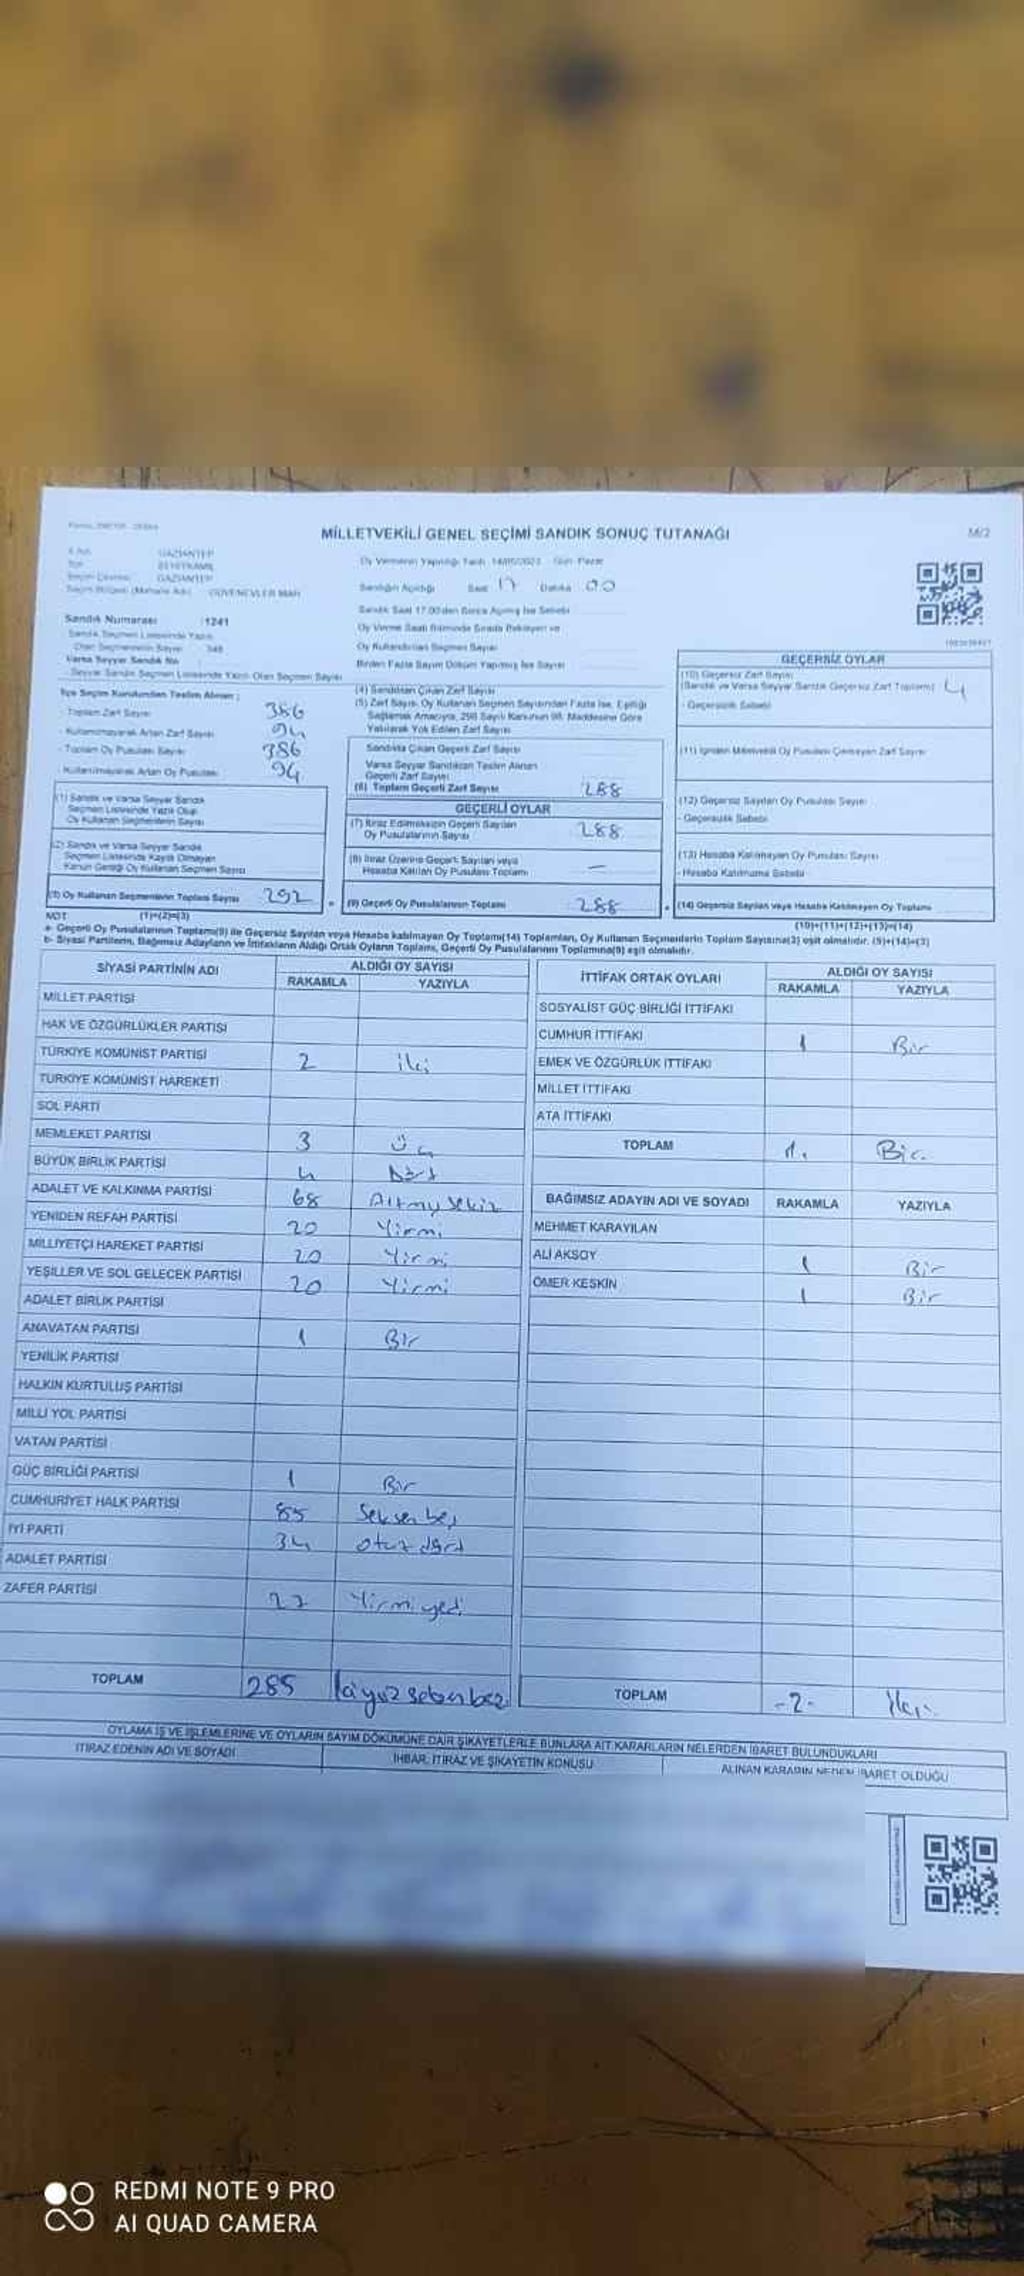 MİLLETVEKİLİ GENEL SEÇİMİ SANDIK SONUÇ TUTANAĞI
M/2
İl Adı GAZİANTEP
GAZİANTEP
GÜVENEVLER MAH
Oy Vermenin Yapıldığı Tarih 14/05/2023 Gün Pazar
Sandığın Açıldığı Saat 17 Dakika 00
Sandık Numarası 1241
Sandık Seçmen Listesinde Yazılı
Olan Seçmenlerin Sayısı 348
Varsa Seyyar Sandık No
Seyyar Sandık Seçmen Listesinde Yazılı Olan Seçmen Sayısı
Sandık Saat 17.00'den Sonra Açılmış İse Sebebi
Oy Verme Saati Bitiminde Sırada Bekleyen ve
Oy Kullandırılan Seçmen Sayısı
Birden Fazla Sayım Döküm Yapılmış İse Sayısı
İlçe Seçim Kurulundan Teslim Alınan :
- Toplam Zarf Sayısı 386
- Kullanılmayarak Artan Zarf Sayısı 94
- Toplam Oy Pusulası Sayısı 386
- Kullanılmayarak Artan Oy Pusulası 94
(1) Sandık ve Varsa Seyyar Sandık
Seçmen Listesinde Yazılı Olup
Oy Kullanan Seçmenlerin Sayısı
(2) Sandık ve Varsa Seyyar Sandık
Seçmen Listesinde Kayıtlı Olmayan
Kanun Gereği Oy Kullanan Seçmen Sayısı
(3) Oy Kullanan Seçmenlerin Toplam Sayısı 292
(4) Sandıktan Çıkan Zarf Sayısı
(5) Zarf Sayısı, Oy Kullanan Seçmen Sayısından Fazla İse, Eşitliği
Sağlamak Amacıyla, 298 Sayılı Kanunun 98. Maddesine Göre
Yakılarak Yok Edilen Zarf Sayısı
Sandıkta Çıkan Geçerli Zarf Sayısı
Varsa Seyyar Sandıktan Teslim Alınan
Geçerli Zarf Sayısı
(6) Toplam Geçerli Zarf Sayısı 288
GEÇERLİ OYLAR
(7) İtiraz Edilmeksizin Geçerli Sayılan
Oy Pusulalarının Sayısı 288
(8) İtiraz Üzerine Geçerli Sayılan veya
Hesaba Katılan Oy Pusulası Toplamı —
(9) Geçerli Oy Pusulalarının Toplamı 288
GEÇERSİZ OYLAR
(10) Geçersiz Zarf Sayısı
(Sandık ve Varsa Seyyar Sandık Geçersiz Zarf Toplamı) 4
- Geçersizlik Sebebi
(12) Geçersiz Sayılan Oy Pusulası Sayısı
- Geçersizlik Sebebi
(13) Hesaba Katılmayan Oy Pusulası Sayısı
- Hesaba Katılmama Sebebi
(14) Geçersiz Sayılan veya Hesaba Katılmayan Oy Toplamı
NOT (1)+(2)=(3)
(10)+(11)+(12)+(13)=(14)
a- Geçerli Oy Pusulalarının Toplamı(9) ile Geçersiz Sayılan veya Hesaba katılmayan Oy Toplamı(14) Toplamları, Oy Kullanan Seçmenlerin Toplam Sayısına(3) eşit olmalıdır. (9)+(14)=(3)
b- Siyasi Partilerin, Bağımsız Adayların ve İttifakların Aldığı Ortak Oyların Toplamı, Geçerli Oy Pusulalarının Toplamına(9) eşit olmalıdır.
SİYASİ PARTİNİN ADI
ALDIĞI OY SAYISI
RAKAMLA YAZIYLA
MİLLET PARTİSİ
HAK VE ÖZGÜRLÜKLER PARTİSİ
TÜRKİYE KOMÜNİST PARTİSİ 2 iki
TÜRKİYE KOMÜNİST HAREKETİ
SOL PARTİ
MEMLEKET PARTİSİ 3 Üç
BÜYÜK BİRLİK PARTİSİ 4 Dört
ADALET VE KALKINMA PARTİSİ 68 Altmış sekiz
YENİDEN REFAH PARTİSİ 20 Yirmi
MİLLİYETÇİ HAREKET PARTİSİ 20 Yirmi
YEŞİLLER VE SOL GELECEK PARTİSİ 20 Yirmi
ADALET BİRLİK PARTİSİ
ANAVATAN PARTİSİ 1 Bir
YENİLİK PARTİSİ
HALKIN KURTULUŞ PARTİSİ
MİLLİ YOL PARTİSİ
VATAN PARTİSİ
GÜÇ BİRLİĞİ PARTİSİ 1 Bir
CUMHURİYET HALK PARTİSİ 85 Seksen beş
İYİ PARTİ 34 otuz dört
ADALET PARTİSİ
ZAFER PARTİSİ 27 Yirmi yedi
TOPLAM 285 ikiyüz seksen beş
İTTİFAK ORTAK OYLARI
ALDIĞI OY SAYISI
RAKAMLA YAZIYLA
SOSYALİST GÜÇ BİRLİĞİ İTTİFAKI
CUMHUR İTTİFAKI 1 Bir
EMEK VE ÖZGÜRLÜK İTTİFAKI
MİLLET İTTİFAKI
ATA İTTİFAKI
TOPLAM 1. Bir.
BAĞIMSIZ ADAYIN ADI VE SOYADI RAKAMLA YAZIYLA
MEHMET KARAYILAN
ALİ AKSOY 1 Bir
ÖMER KESKİN 1 Bir
TOPLAM -2- iki.
OYLAMA İŞ VE İŞLEMLERİNE VE OYLARIN SAYIM DÖKÜMÜNE DAİR ŞİKAYETLERLE BUNLARA AİT KARARLARIN NELERDEN İBARET BULUNDUKLARI
İTİRAZ EDENİN ADI VE SOYADI
İHBAR, İTİRAZ VE ŞİKAYETİN KONUSU
ALINAN KARARIN NEDEN İBARET OLDUĞU
REDMI NOTE 9 PRO
AI QUAD CAMERA